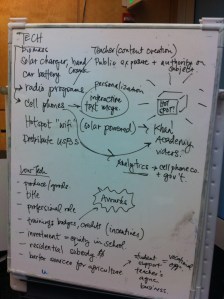 TECH
biomass
Solar charger, hand crank
car battery
Teacher (content creation)
Public expose + authority on subjects
radio programs
personalization
cell phones
interactive text msgs.
HOT SPOT
Hotspot "wifi"
(solar powered)
Khan Academy
videos.
Distribute USBs
Analytics → cell phone co.
+ gov't.
Low-Tech
produce/goods
title
Awards
professional role
trainings, badges, credit (incentives)
investment + equity in school
residential subsidy
for agriculture
student
support
teacher's